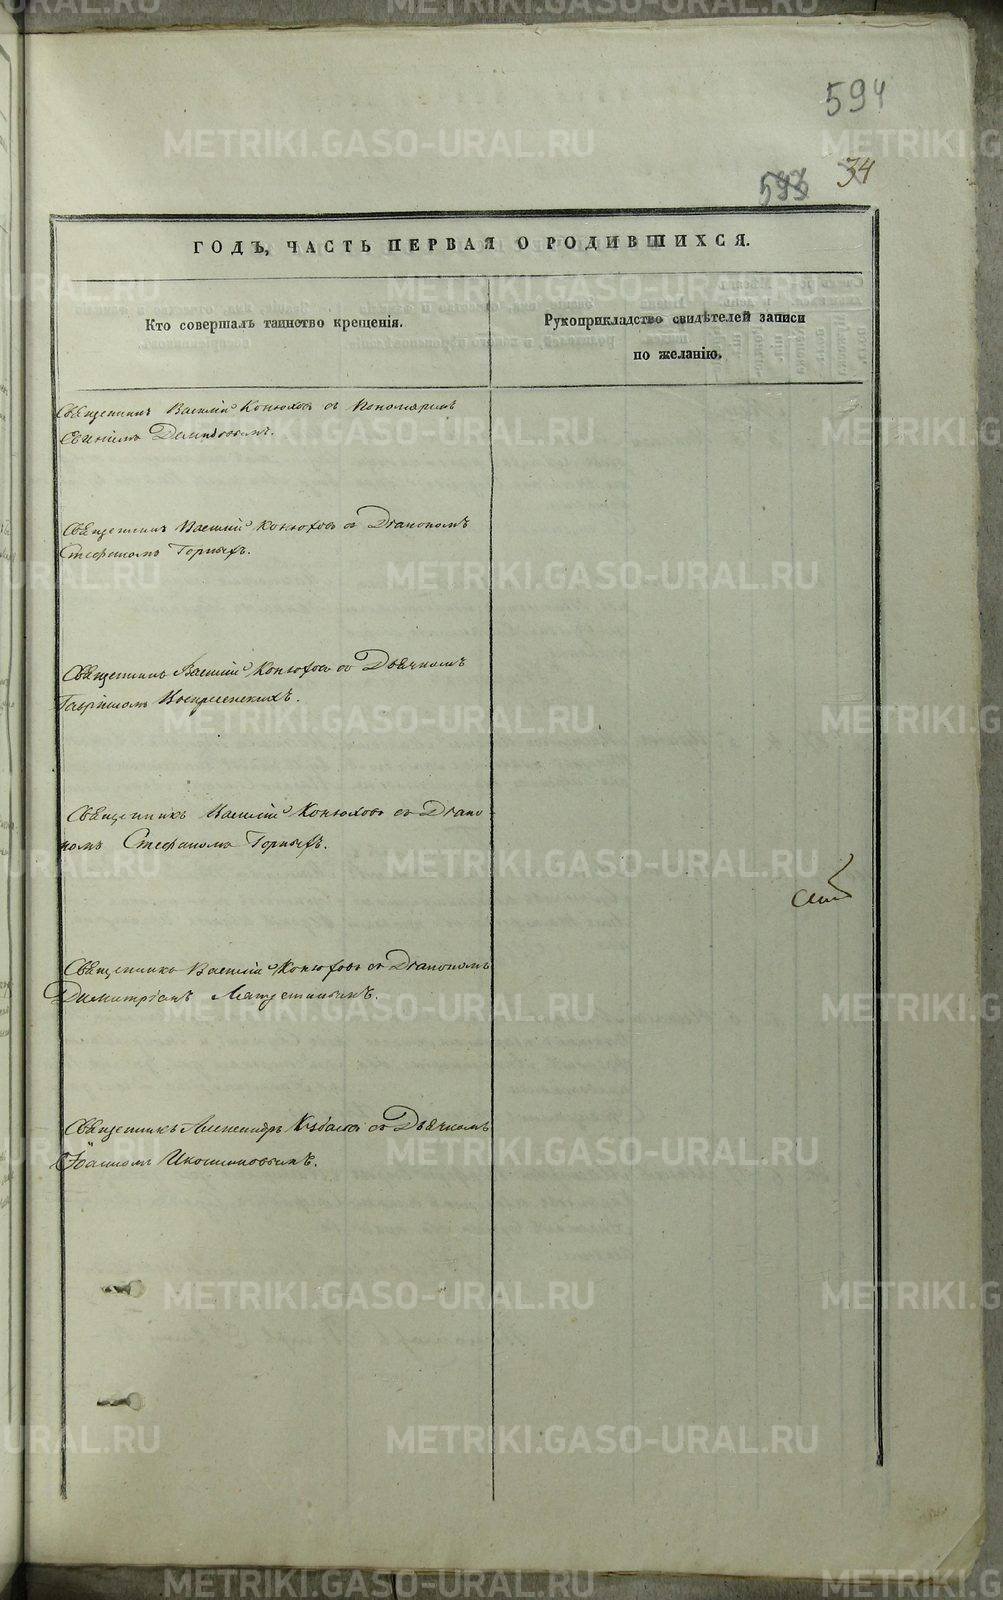 594
593 34
ГОДЪ, ЧАСТЬ ПЕРВАЯ О РОДИВШИХСЯ.
Кто совершалъ таинство крещенія.
Рукоприкладство свидѣтелей записи
по желанію.
Священникъ Василій Конюховъ съ Пономаремъ
Евгеніемъ
Священникъ Василій Конюховъ съ Діакономъ
Стефаномъ Горныхъ.
Священникъ Василій Конюховъ съ Дьячкомъ
Гавріиломъ Воскресенскихъ.
Священникъ Василій Конюховъ съ Діако-
номъ Стефаномъ Горныхъ.
Священникъ Василій Конюховъ съ Діакономъ
Димитріемъ
Священникъ Александръ съ Дьячкомъ
Іоанномъ
METRIKI.GASO-URAL.RU